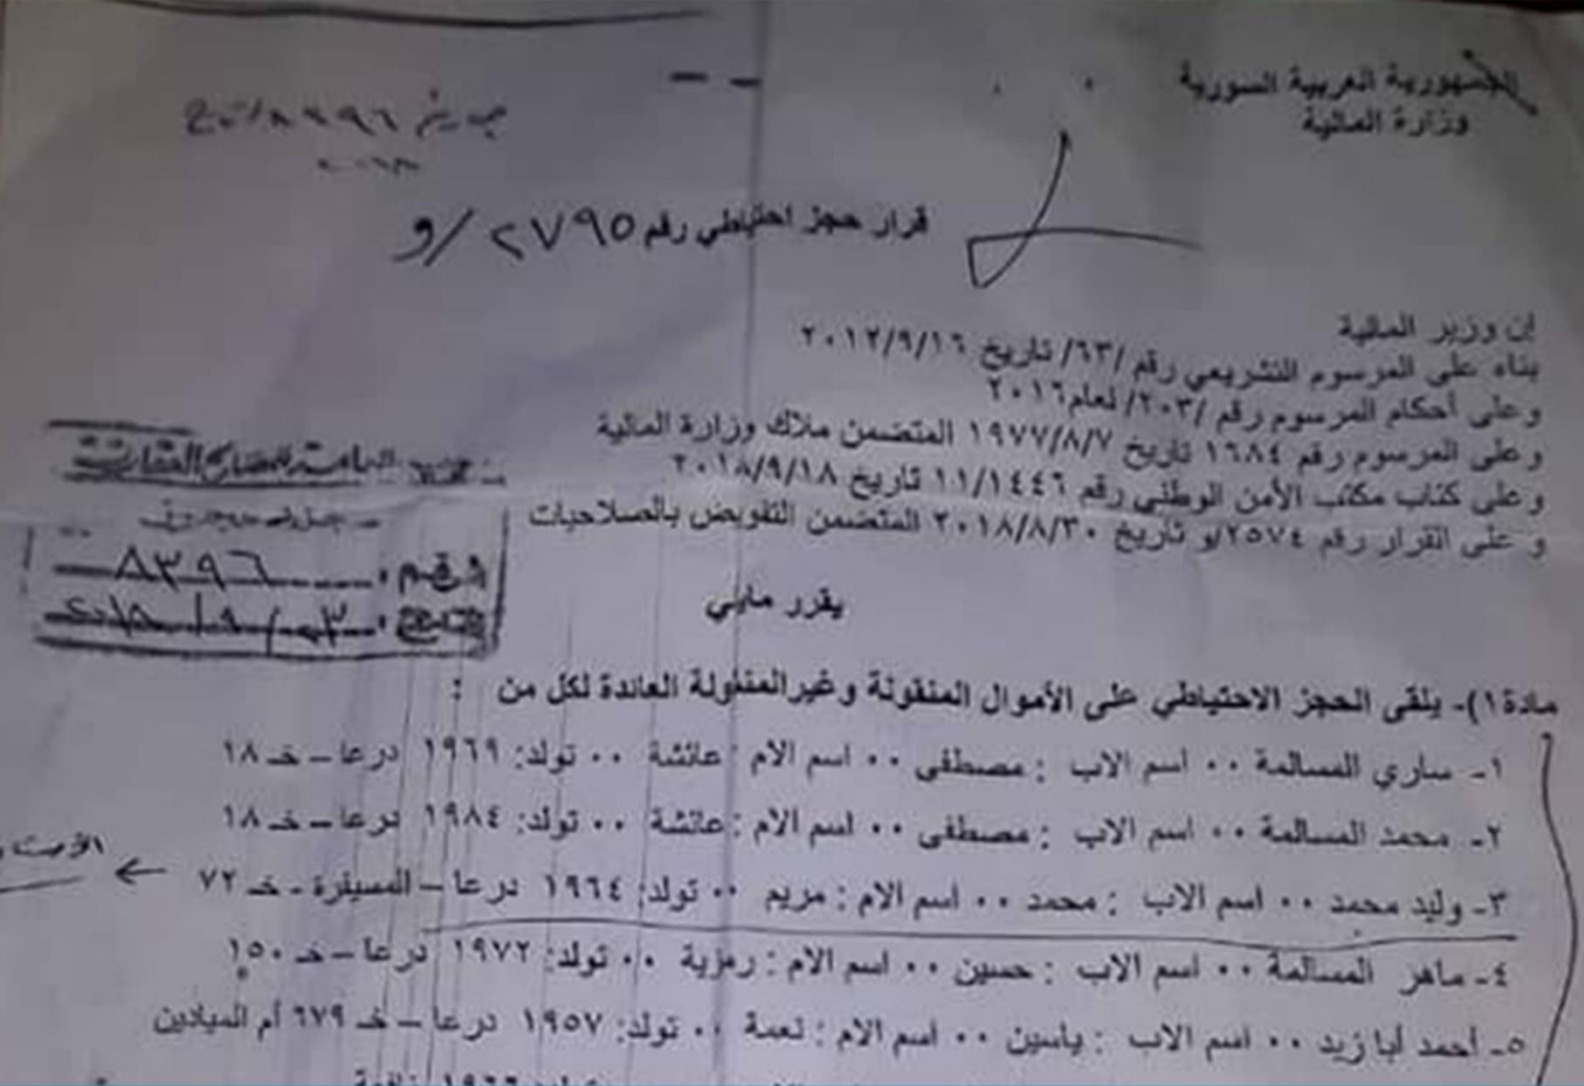 الجمهورية العربية السورية
وزارة المالية
قرار حجز احتياطي رقم ٢٧٩٥ /و
إن وزير المالية
بناء على المرسوم التشريعي رقم /٦٣/ تاريخ ٢٠١٢/٩/١٦
وعلى أحكام المرسوم رقم /٢٠٣/ لعام ٢٠١٦
وعلى المرسوم رقم ١٦٨٤ تاريخ ١٩٧٧/٨/٧ المتضمن ملاك وزارة المالية
وعلى كتاب مكتب الأمن الوطني رقم ١١/١٤٤٦ تاريخ ٢٠١٨/٩/١٨
و على القرار رقم ٢٥٧٤/و تاريخ ٢٠١٨/٨/٣٠ المتضمن التفويض بالصلاحيات
العامة للمصالح العقارية
رقم: ٨٣٩٦
يقرر مايلي
مادة١)- يلقى الحجز الاحتياطي على الأموال المنقولة وغيرالمنقولة العائدة لكل من :
١- ساري المسالمة ٠٠ اسم الاب : مصطفى ٠٠ اسم الام : عائشة ٠٠ تولد: ١٩٦٩ درعا – خـ ١٨
٢- محمد المسالمة ٠٠ اسم الاب : مصطفى ٠٠ اسم الام : عائشة ٠٠ تولد: ١٩٨٤ درعا – خـ ١٨
٣- وليد محمد ٠٠ اسم الاب : محمد ٠٠ اسم الام : مريم ٠٠ تولد: ١٩٦٤ درعا – المسيفرة - خـ ٧٢
٤- ماهر المسالمة ٠٠ اسم الاب : حسين ٠٠ اسم الام : رمزية ٠٠ تولد: ١٩٧٢ درعا – خـ ١٥٠
٥- أحمد أبا زيد ٠٠ اسم الاب : ياسين ٠٠ اسم الام : نعمة ٠٠ تولد: ١٩٥٧ درعا – خـ ٦٧٩ أم الميادين